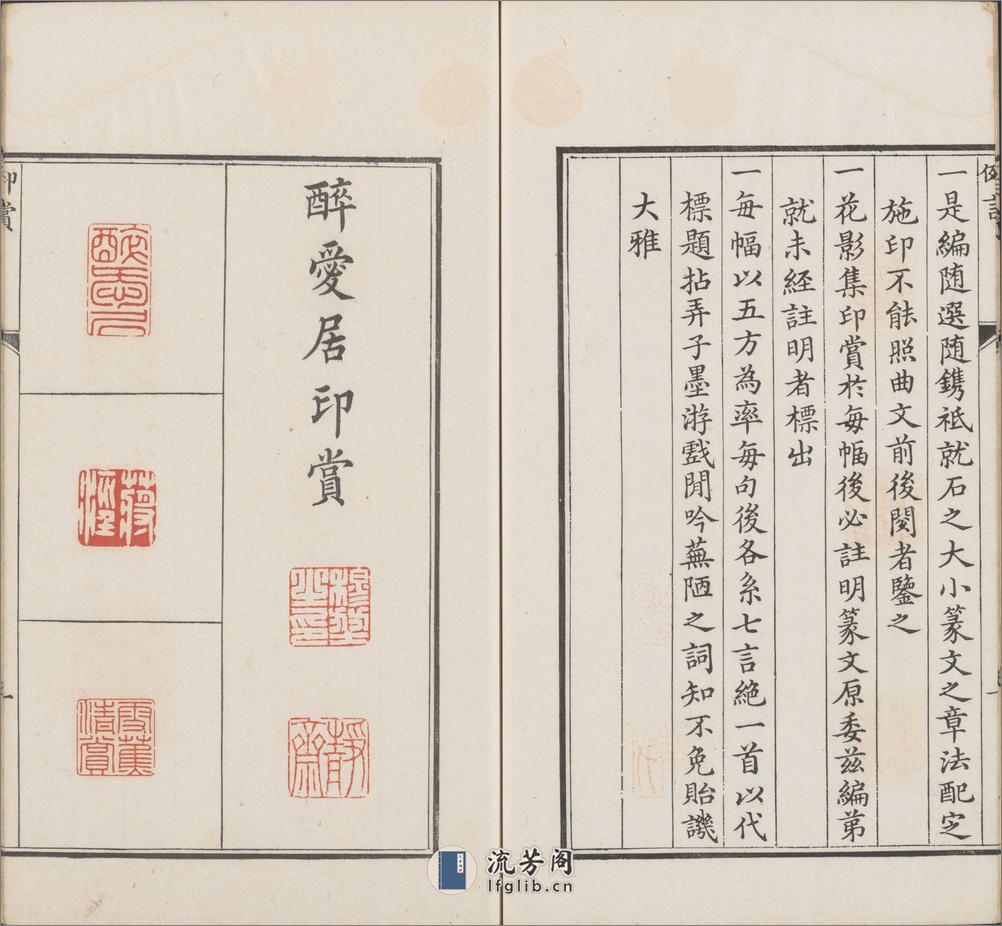 一是編随選随鐫祗就石之大小篆文之章法配定
施印不能照曲文前後閱者鑒之
一花影集印賞於每幅後必註明篆文原委兹編弟
就未經註明者標出
一每幅以五方為率每句後各系七言絶一首以代
標題拈弄子墨游戲閒吟蕪陋之詞知不免貽譏
大雅
醉愛居印賞
靜齋
雪蕉清賞
印賞
流芳阁
lfglib.cn